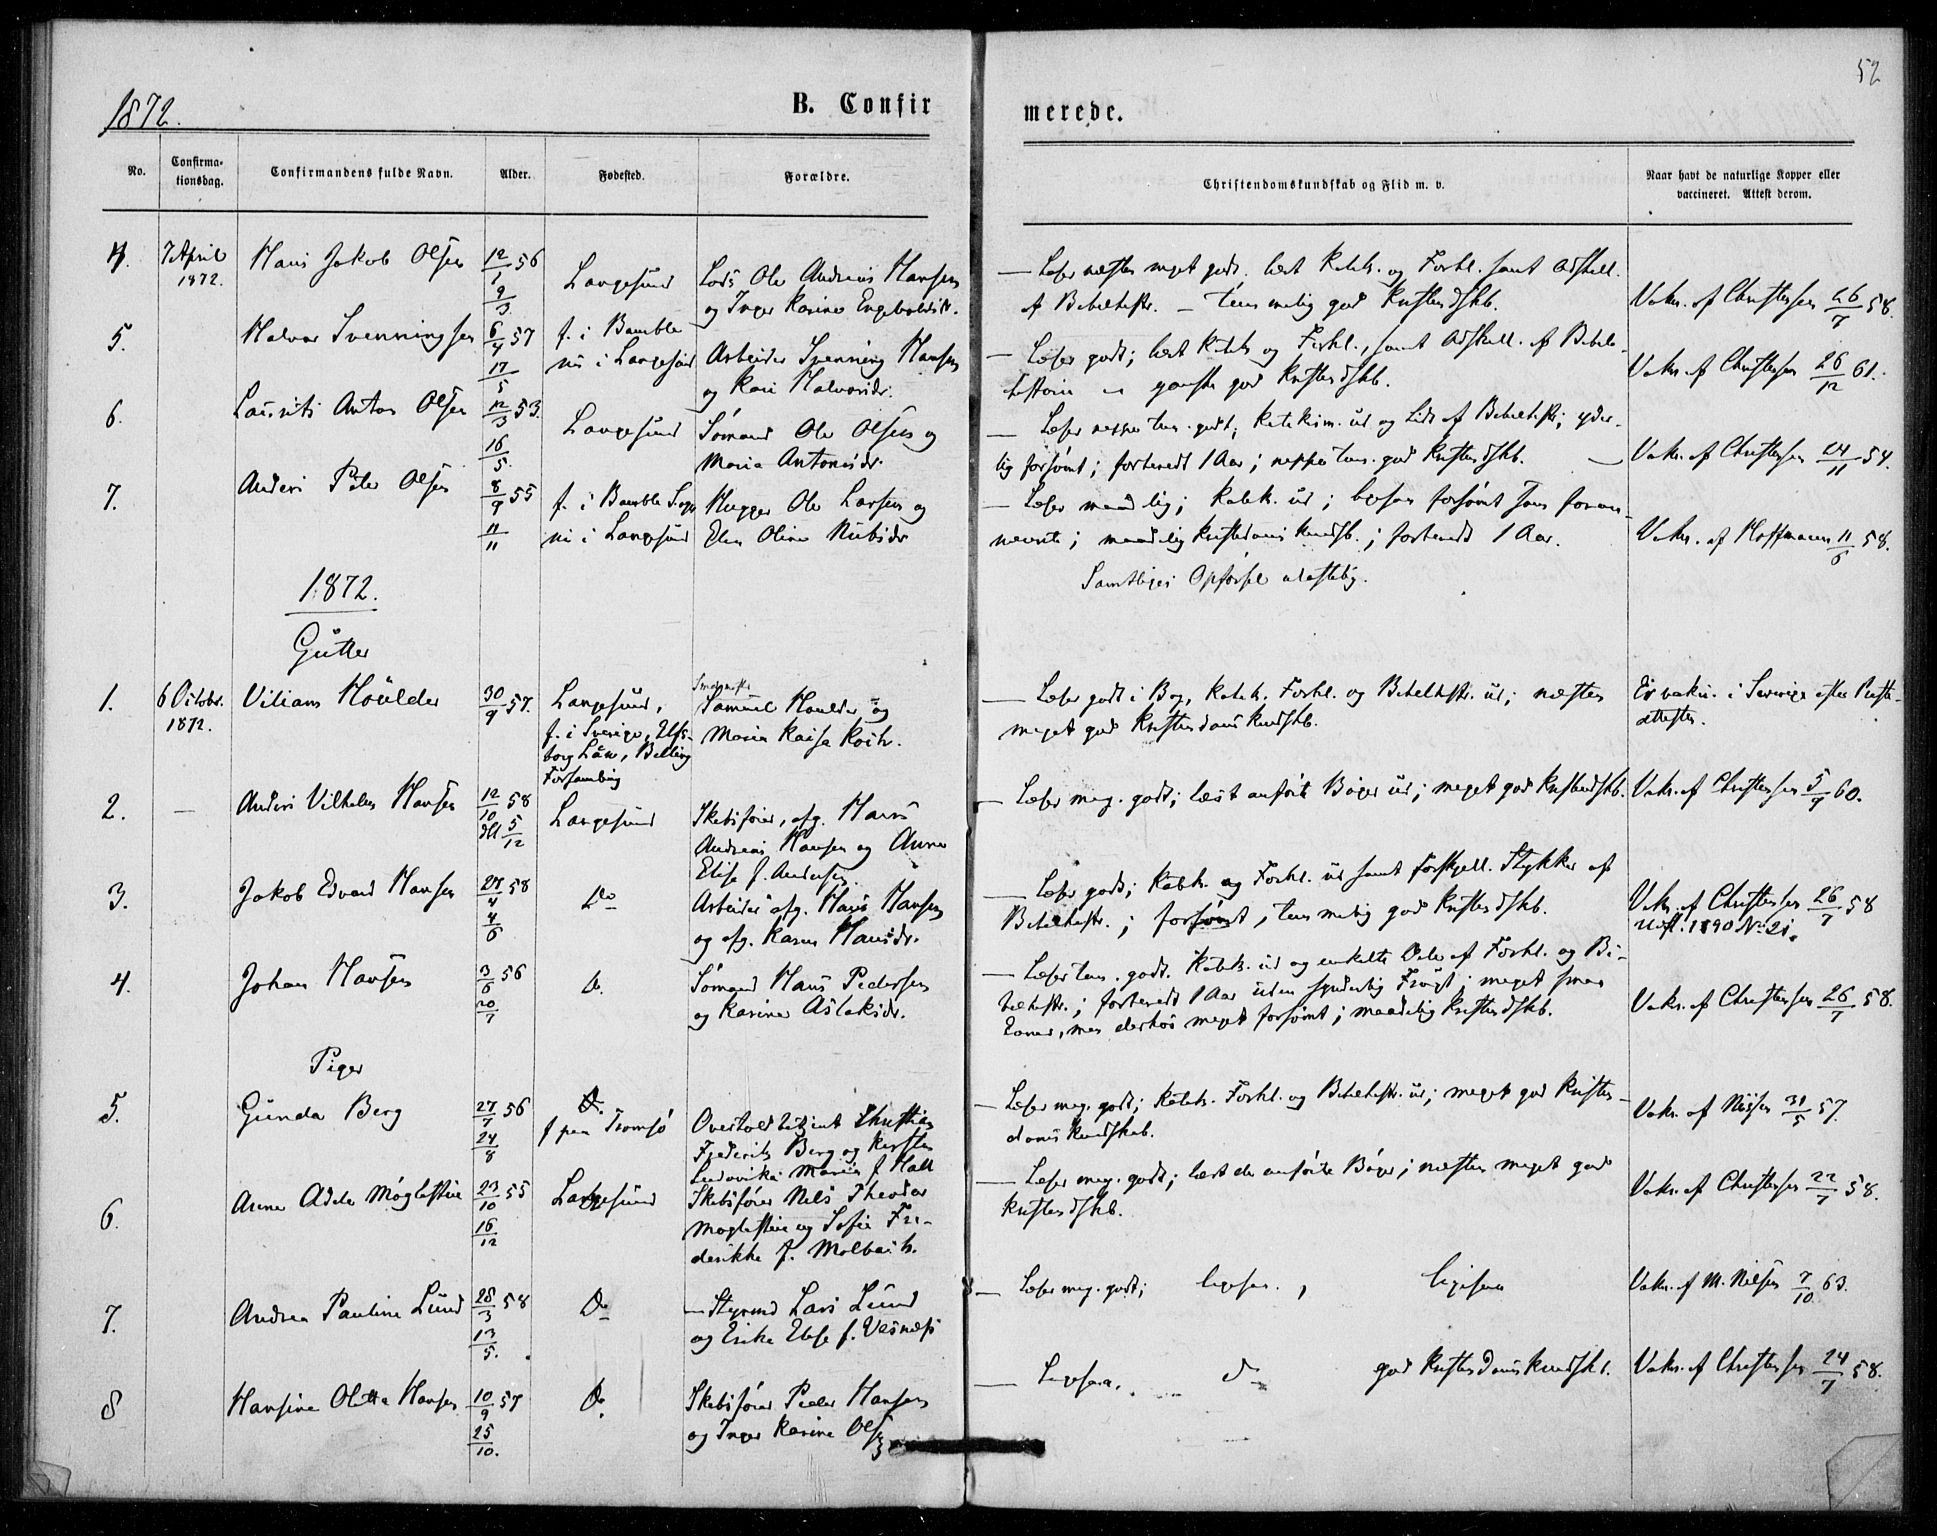 52
1872.
B. Confir
merede.
No.
Confirma-
tionsdag.
Confirmandens fulde Navn.
Alder.
Fødested.
Forældre.
Christendomskundskab og Flid m. v.
Naar havt de naturlige Kopper eller
vaccineret. Attest derom.
4. 7 April 1872. Hans Jakob Olsen 12/1 56 9/3 Langesund
Lods Ole Andreas Hansen
og Inger Karine Engeboldsdr.
— Læser næsten meget godt. læst Katek. og Forkl. samt Adskill.
af Bibelhistr. — temmelig god Kristendskb.
Vakc. af Christensen 26/7 58.
5. Halvor Svenningsen 6/4 57 17/5
f. i Bamble
nu i Langesund
Arbeider Svenning Hansen
og Kari Halvorsdr.
— Læser godt; læst Katek og Forkl., samt Adskill. af Bibel-
historie — ganske god Kristendskb.
Vakc. af Christensen 26/12 61.
6. Laurits Anton Olsen 12/3 53. 16/5. Langesund
Sømand Ole Olsen og
Maria Antonsdr.
— Læser neppe tem. godt; Katekism. ud og Lidt af Bibelhistr.; yder-
lig forsømt; forberedt 1 Aar; neppe tem. god Kristendskb.
Vakc. af Christensen 24/11 54.
7. Anders Peter Olsen 8/9 55 11/11
f. i Bamble Sogn
nu i Langesund
Hugger Ole Larsen og
Elen Oline Nubsdr
— Læser maadelig; Katek. ud; ligesaa forsømt som foran-
nævnte; maadelig Kristendoms kundsb.; forberedt 1 Aar.
Vakc. af Hoffmann 11/6 58.
Samtliges Opførsel ulastelig.
1872.
Gutter
1. 6 Octobr. 1872. Viliam Houlder 30/9 57.
Langesund,
f. i Sverige, Elfs-
borg Län, Belling
Forsamling
Samuel Houlder og
Maria Kaisa Koch.
— Læser godt i Bog, Katek. Forkl. og Bibelhistr. ud; næsten
meget god Kristendoms kundskb.
Er vakc. i Sverige efter Præste-
attester.
2. — Anders Vilhelm Hansen 12/10 58 dbt 5/12 Langesund
Skibsfører, afg. Hans
Andreas Hansen og Anne
Elise f. Andersen.
— Læser meg. godt; læst anførte Bøger ud; meget god Kristendskb.
Vakc. af Christensen 5/9 60.
3. Jakob Edvard Hansen 27/4 58 4/6 Do
Arbeider afg. Hans Hansen
og afg. Karen Hansdr.
— Læser godt; Katek. og Forkl. ud samt forskjell. Stykker af
Bibelhistr.; forsømt; temmelig god Kristendskb.
Vakc. af Christensen 26/7 58
Udst. 1890 No 21.
4. Johan Hansen 3/6 56 20/7 Do.
Sømand Hans Pedersen
og Karine Aslaksdr.
— Læser tem. godt. Katek. ud og enkelte Dele af Forkl. og Bi-
belhistr.; forberedt 1 Aar uden synderlig Frugt; meget smaa
Evner, men derhos meget forsømt; maadelig Kristendskb.
Vakc. af Christensen 26/7 58.
Piger
5. Gunda Berg 27/7 56 24/8
Do.
f paa Tromsø
Overtoldbetjent Christian
Frederik Berg og Kirsten
Ludovika Maria f. Hall
— Læser meg. godt; Katek. Forkl. og Bibelhistr. ud; meget god Kristen-
doms kundskab.
Vakc. af Nissen 31/5 57.
6. Anna Adele Møglestue 23/10 55 16/12 Langesund
Skibsfører Nils Theodor
Møglestue og Sofie Fre-
derikke f. Molbach.
— Læser meg. godt; læst de anførte Bøger; næsten meget god
Kristendskb.
Vakc. af Christensen 22/7 58.
7. Andrea Pauline Lund 28/3 58 13/5. Do
— Styrmd Lars Lund
og Erika Else f. Vesnæss
— Læser meg. godt; ligesaa, ligesaa
Vakc. af M. Nilsen 7/10 63.
8 Hansine Olitta Hansen 10/9 57 25/10. Do.
Skibsfører Peder Hansen
og Inger Karine Olsen
— Ligesaa. do god Kristendomskundskb.
Vakc. af Christensen 24/7 58.